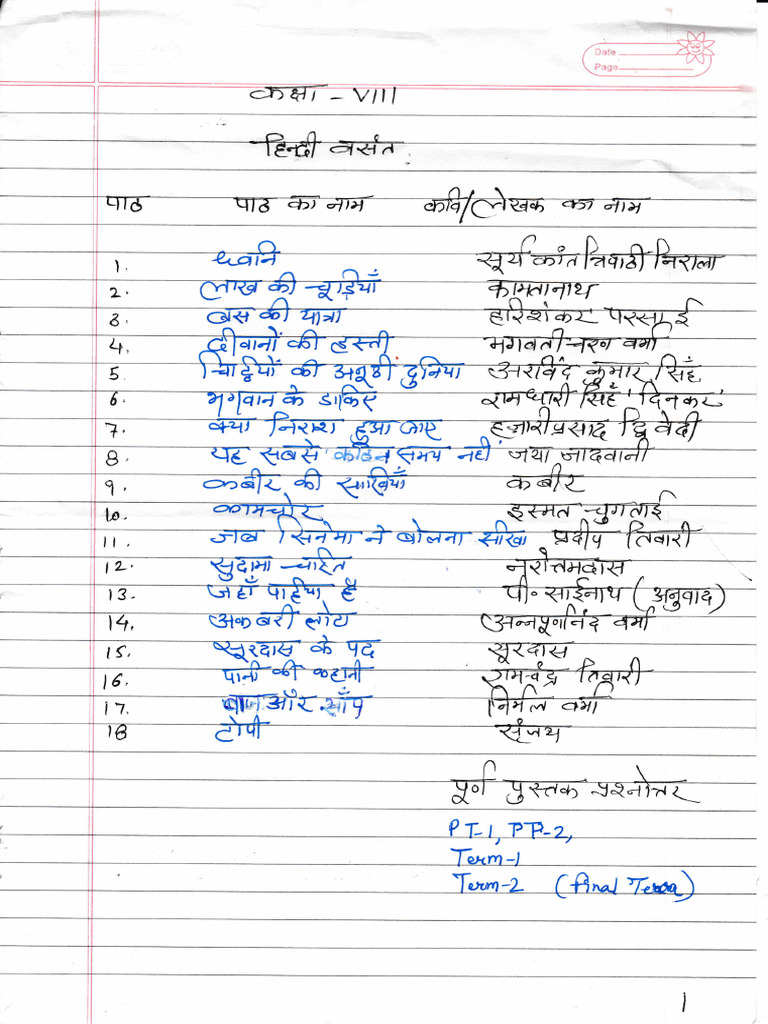 Date
Page
कक्षा - VIII
हिन्दी वसंत
पाठ पाठ का नाम कवि/लेखक का नाम
1. ध्वनि सूर्य कांत त्रिपाठी निराला
2. लाख की चूड़ियाँ कामतानाथ
3. बस की यात्रा हरिशंकर परसाई
4. दीवानों की हस्ती भगवती चरन वर्मा
5. चिट्ठियों की अनूठी दुनिया अरविंद कुमार सिंहँ
6. भगवान के डाकिए रामधारी सिंहँ 'दिनकर'
7. क्या निराश हुआ जाए हजारीप्रसाद द्विवेदी
8. यह सबसे कठिन समय नहीं जया जादवानी
9. कबीर की साखियाँ कबीर
10. कामचोर इस्मत चुगताई
11. जब सिनेमा ने बोलना सीखा प्रदीप तिवारी
12. सुदामा चरित नरोत्तमदास
13. जहाँ पहिया है पी. साईनाथ (अनुवाद)
14. अकबरी लोटा अन्नपूर्णानंद वर्मा
15. सूरदास के पद सूरदास
16. पानी की कहानी रामचंद्र तिवारी
17. बाज और साँप निर्मल वर्मा
18 टोपी सृंजय
पूर्ण पुस्तक प्रश्नोत्तर
PT-1, PT-2,
Term-1
Term-2 (final Term)
1